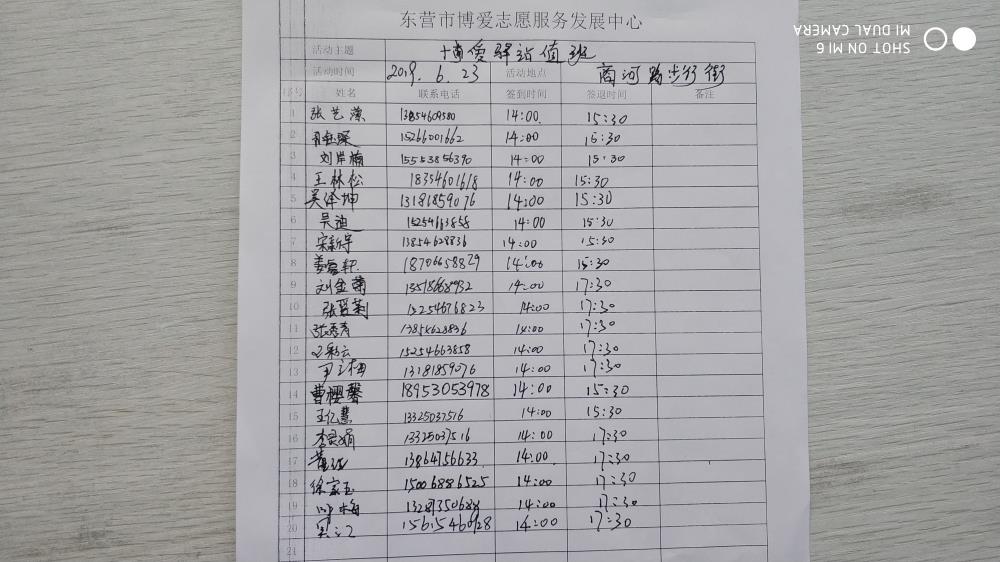 东营市博爱志愿服务发展中心
SHOT ON MI 6
MI DUAL CAMERA
活动主题 博爱驿站值班
活动时间 2019.6.23 活动地点 商河路步行街
序号 姓名 联系电话 签到时间 签退时间 备注
1 张艺 14:00 15:30
2 15266001662 14:00 15:30
3 刘岸楠 15553856390 14:00 15:30
4 王林松 18354601618 14:00 15:30
5 吴泽坤 13181859076 14:00 15:30
6 吴迪 15254663858 14:00 15:30
7 宋新宇 13854628836 14:00 15:30
8 姜睿轩 18706658829 14:00 15:30
9 刘金菊 14:00 17:30
10 张爱莉 15254676823 14:00 17:30
11 13854628836 14:00 17:30
12 王彩云 15254663858 14:00 17:30
13 13181859076 14:00 17:30
14 曹樱馨 18953053978 14:00 15:30
15 王亿慧 13325037516 14:00 15:30
16 李灵娟 13325037516 14:00 17:30
17 13864756633 14:00 17:30
18 徐家玉 15006886525 14:00 17:30
19 14:00 17:30
20 15615460128 14:00 17:30
21